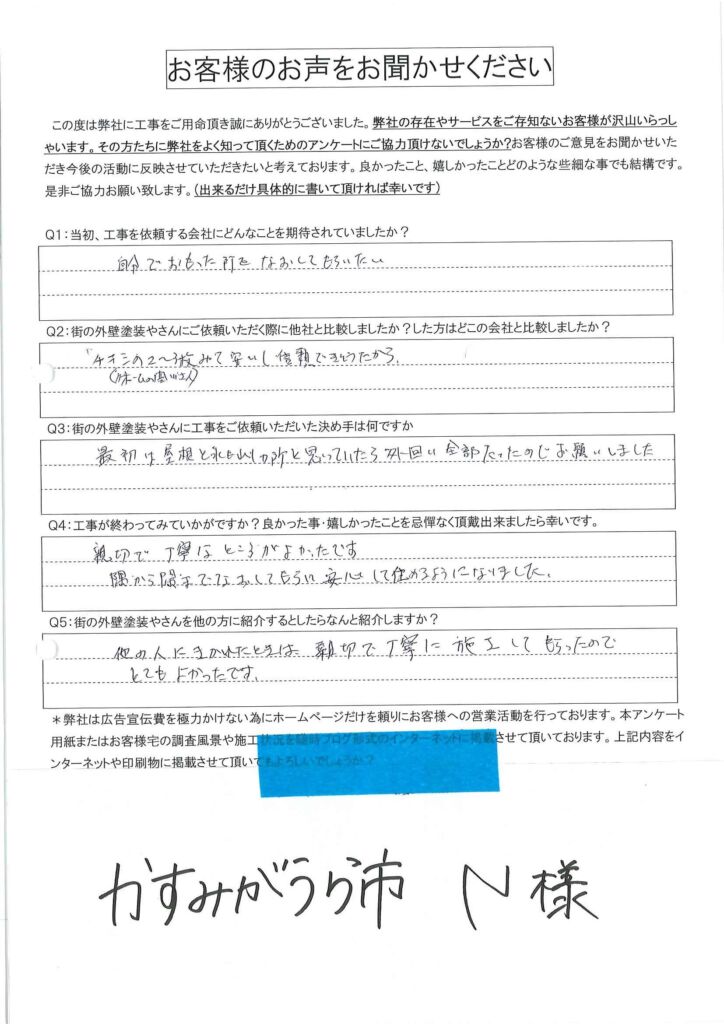 お客様のお声をお聞かせください
この度は弊社に工事をご用命頂き誠にありがとうございました。弊社の存在やサービスをご存知ないお客様が沢山いらっし
ゃいます。その方たちに弊社をよく知って頂くためのアンケートにご協力頂けないでしょうか?お客様のご意見をお聞かせいた
だき今後の活動に反映させていただきたいと考えております。良かったこと、嬉しかったことどのような些細な事でも結構です。
是非ご協力お願い致します。(出来るだけ具体的に書いて頂ければ幸いです)
Q1:当初、工事を依頼する会社にどんなことを期待されていましたか?
自分でおもった所をなおしてもらいたい
Q2:街の外壁塗装やさんにご依頼いただく際に他社と比較しましたか?した方はどこの会社と比較しましたか?
チラシの2〜3枚みて安いし信頼できそうだから、
Q3:街の外壁塗装やさんに工事をご依頼いただいた決め手は何ですか
最初は屋根と 所と思っていたら外回り全部だったのでお願いしました
Q4:工事が終わってみていかがですか?良かった事・嬉しかったことを忌憚なく頂戴出来ましたら幸いです。
親切で丁寧なところがよかったです
隅から隅までなおしてもらい安心して住めるようになりました。
Q5:街の外壁塗装やさんを他の方に紹介するとしたらなんと紹介しますか?
他の人にきかれたときは親切で丁寧に施工してもらったので
とてもよかったです。
*弊社は広告宣伝費を極力かけない為にホームページだけを頼りにお客様への営業活動を行っております。本アンケート
用紙またはお客様宅の調査風景や施工状況を随時ブログ形式のインターネットに掲載させて頂いております。上記内容をイ
ンターネットや印刷物に掲載させて頂いてもよろしいでしょうか?
かすみがうら市 N様